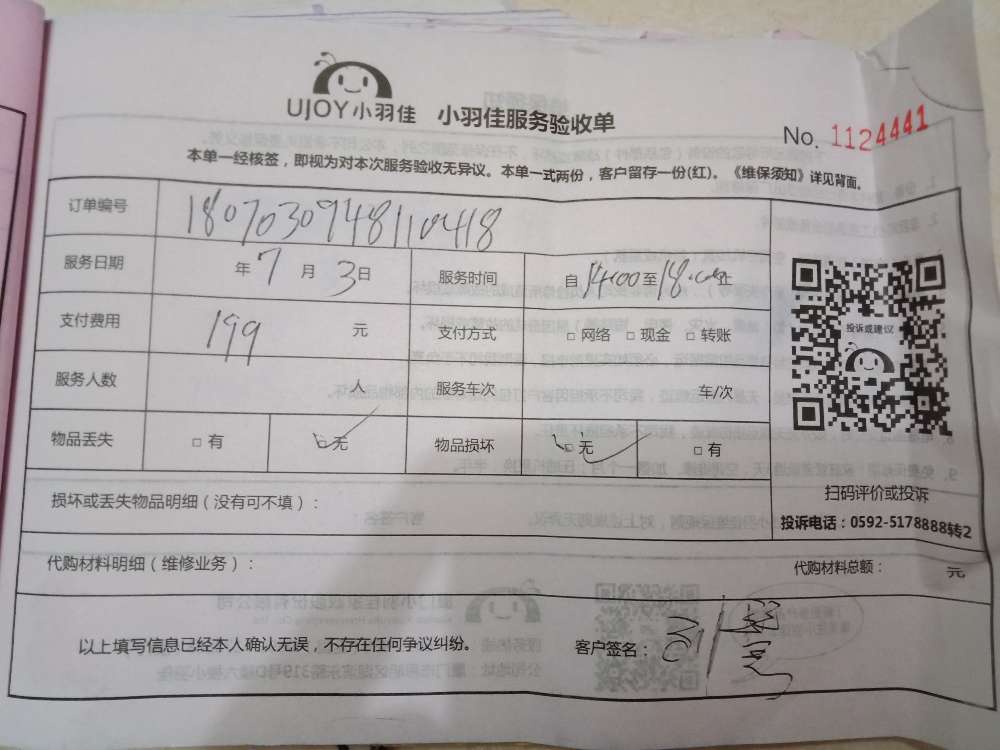 UJOY小羽佳 小羽佳服务验收单
No. 1124441
本单一经核签，即视为对本次服务验收无异议。本单一式两份，客户留存一份(红)。《维保须知》详见背面。
订单编号 1807030948110418
服务日期 年 7 月 3 日 服务时间 自 14:00 至 18:00 止
支付费用 199 元 支付方式 □ 网络 □ 现金 □ 转账
投诉或建议
服务人数 人 服务车次 车/次
物品丢失 □ 有 □ 无 物品损坏 □ 无 □ 有
扫码评价或投诉
损坏或丢失物品明细（没有可不填）：
投诉电话：0592-5178888转2
代购材料明细（维修业务）： 代购材料总额： 元
以上填写信息已经本人确认无误，不存在任何争议纠纷。 客户签名：